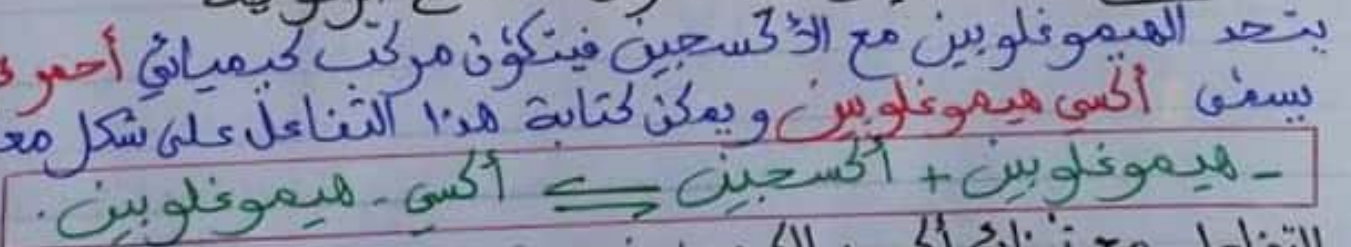 يتحد الهيموغلوبين مع الأكسجين فيتكون مركب كيميائي أحمر
يسمى أكسي هيموغلوبين ويمكن كتابة هذا التفاعل على شكل
- هيموغلوبين + أكسجين ⇌ أكسي - هيموغلوبين.